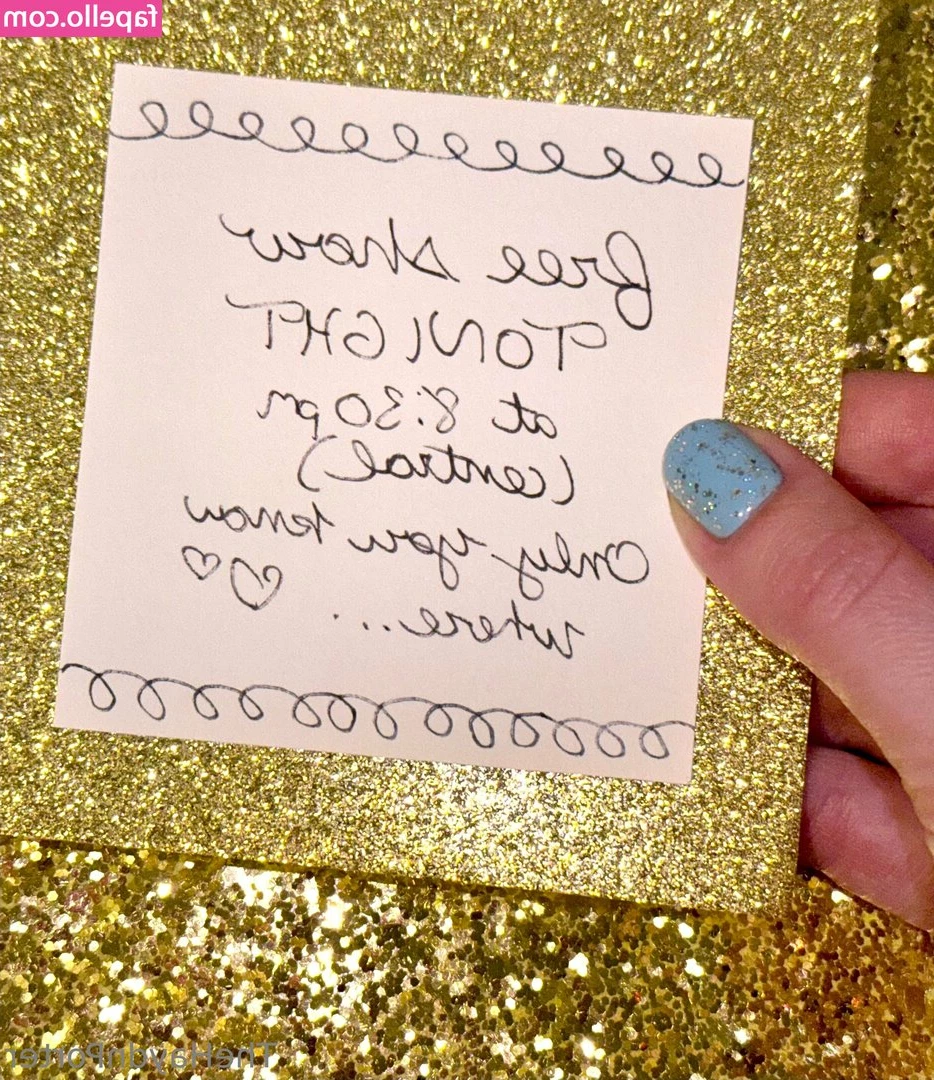 fapello.com
free show
TONIGHT
at 8:30pm
(central)
Only you know
where...
TheHaydnPorter